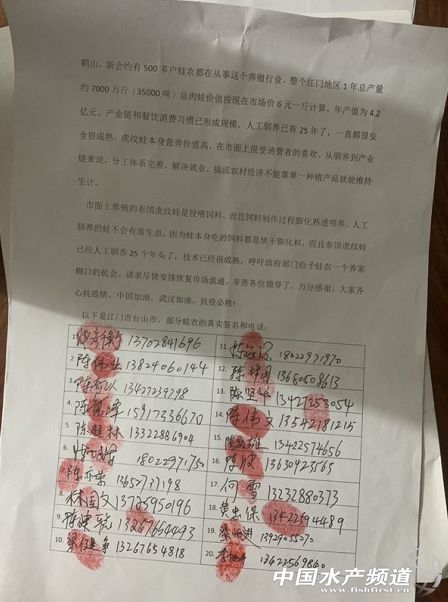 鹤山，新会约有 500 多户蛙农都在从事这个养殖行业，整个江门地区 1 年总产量
约 7000 万斤（35000 吨）总肉蛙价值按现在市场价 6 元一斤计算，年产值为 4.2
亿元。产业链和餐饮消费习惯已形成规模，人工驯养已有 25 年了，一直都很安
全很成熟，虎纹蛙本身营养价值高，在市面上很受消费者的喜欢。从驯养到产业
链来说，分工体系完善，解决就业，搞活农村经济不能靠单一种植产品就能维持
生计。
市面上养殖的泰国虎纹蛙是投喂饲料，而且饲料制作过程膨化熟透喂养。人工
驯养的蛙不会有寄生虫，因为蛙本身吃的饲料都是烘干膨化料，而且泰国虎纹蛙
已经人工驯养 25 个年头了，技术已经很成熟，呼吁政府部门给予蛙农一个养家
糊口的机会。请求尽快安排恢复市场流通，辛苦各位领导了，万分感谢，大家齐
心抗疫情，中国加油，武汉加油，抗疫必胜！
以下是江门市台山市，部分蛙农的真实签名和电话：
1 13702841696 11. 18022971970
2 陈伟业 13824060144 12. 13680508613
3 13427239798 13. 13427253054
4 15917336670 14. 陈伟文 13542181215
5 陈超林 13322886904 15. 13422574656
6 1802297175 16. 13630423565
7 陈亦荣 13652737198 17. 何雪 13232880373
8 林国文 13725950196 18. 黄忠保 13422594489
9 13267654493 19. 13929055070
10 13267654818 20. 13622569840
中国水产频道
www.fishfirst.cn